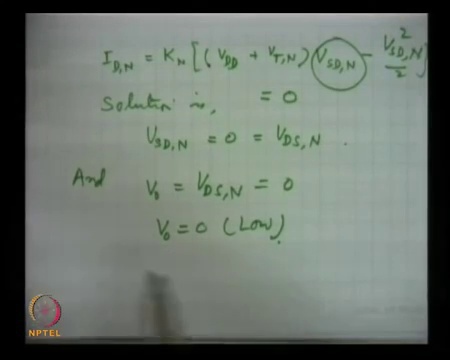 I_{D,N} = K_N [(V_{DD} + V_{T,N}) V_{SD,N} - \frac{V_{SD,N}^2}{2}]
Solution is, = 0
V_{SD,N} = 0 = V_{DS,N}.
And V_0 = V_{DS,N} = 0
V_0 = 0 (Low).
NPTEL